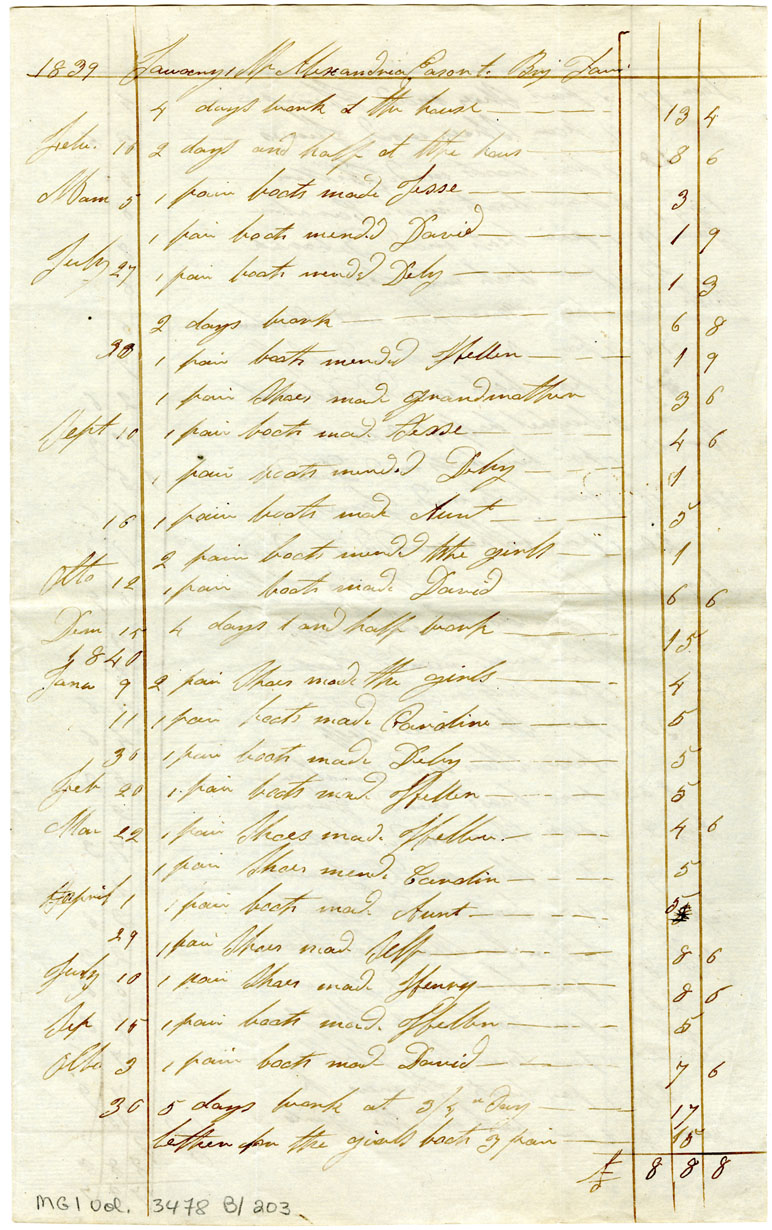 1839 Mr Alexandria Eason to Binj
4 days work at the house 13 4
Febu. 16 2 days and half at the hous 8 6
5 1 pair boots made Jesse 3
1 pair boots mended David 1 9
July 27 1 pair boots mended Deby 1 3
2 days work 6 8
1 pair boots mended Hellen 1 9
1 pair Shoes made grandmother 3 6
Sept 10 1 pair boots made Jesse 4 6
1 pair boots mended Deby 1
16 1 pair boots made Aunt 5
2 pair boots mended the girls 1
Octo 12 1 pair boots made David 6 6
Dem 15 4 days and half work 15
1840
Janu 9 2 pair Shoes made the girls 4
11 1 pair boots made Caroline 5
30 1 pair boots made Deby 5
Feb 20 1 pair boots made Hellen 5
Mar 22 1 pair Shoes made Hellen 4 6
1 pair Shoes mend Carolin 5
April 1 1 pair boots made Aunt 5
29 1 pair Shoes made Self 8 6
July 10 1 pair Shoes made Henry 8 6
Sep 15 1 pair boots made Hellen 5
Octo 3 1 pair boots made David 7 6
30 5 days work at 3/5 Day 17
lether for the girls boots 3 pair 15
£ 8 8 8
MG1 Vol. 3478 B/203